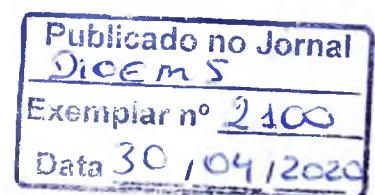 Publicado no Jornal
DiOEMS
Exemplar nº 2100
Data 30 / 04 / 2020